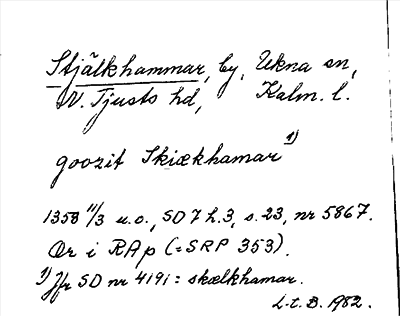 Stjälkhammar, by, Ukna sn,
N. Tjusts hd, Kalm. l.
goozit Skiækhamar 1)
1358 11/3 u.o., SD 7 h.3, s. 23, nr 5867.
Or i RAp (=SRP 353).
1) Jfr SD nr 4191: skælkhamar.
L.t.B. 1982.